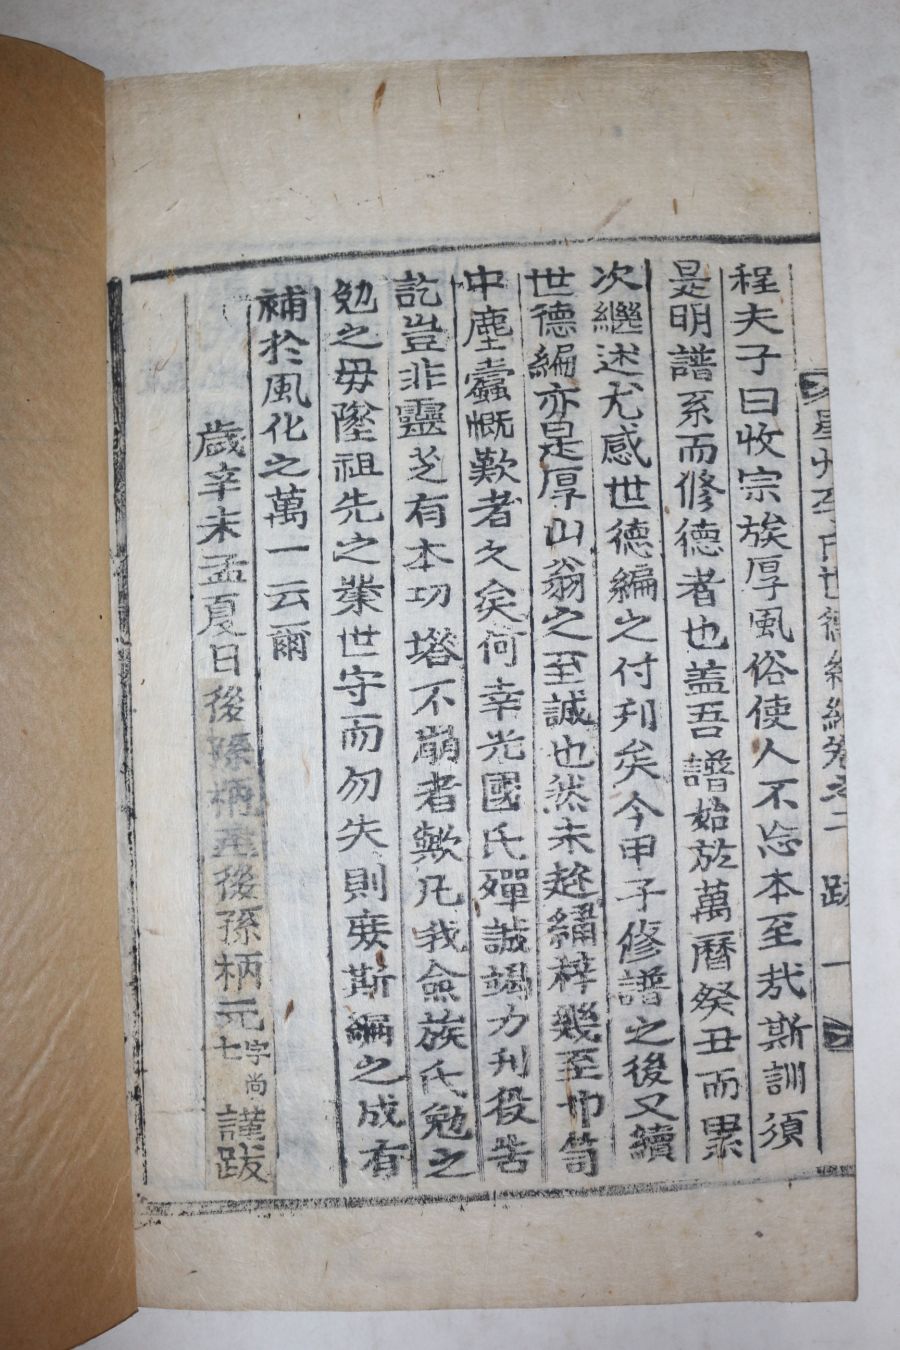 星州李氏世德編續編卷之二 跋 一
程夫子曰收宗族厚風俗使人不忘本至哉斯訓須
是明譜系而修德者也盖吾譜始於萬曆癸丑而累
次繼述尤感世德編之付刋矣今甲子修譜之後又續
世德編亦是厚山翁之至誠也然未趂繡梓幾至巾笥
中塵蠹慨歎者久矣何幸光國氏殫誠竭力刋役告
訖豈非靈芝有本功塔不崩者歟凡我僉族氏勉之
勉之毋墜祖先之業世守而勿失則庶斯編之成有
補於風化之萬一云爾
歲辛未孟夏日後孫柄 後孫柄元字尚七謹跋